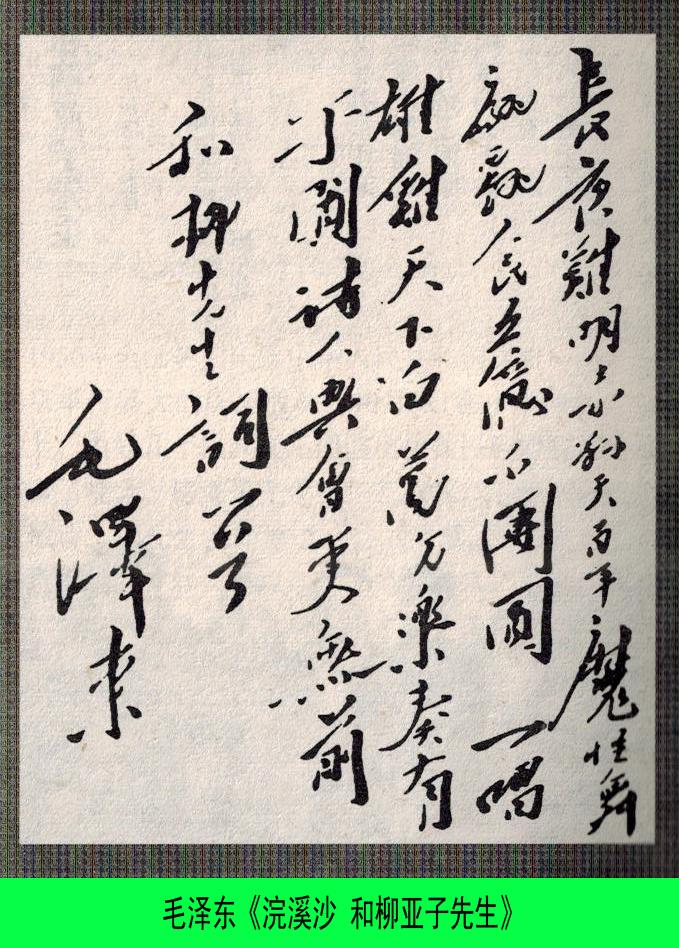 長夜難明赤縣天百年魔怪舞
翩躚人民五億不團圓 一唱
雄雞天下白萬方樂奏有
于闐詩人興會更無前
和柳先生詞
毛澤東
毛泽东《浣溪沙 和柳亚子先生》